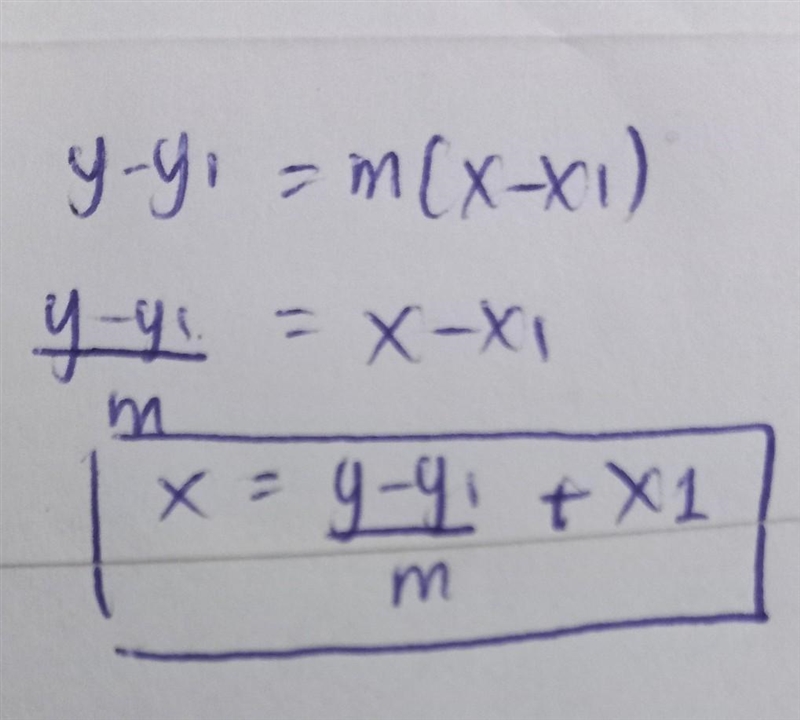 y-y1 = m(x-x1)
y-y1 = x-x1
m
x = y-y1 + x1
m